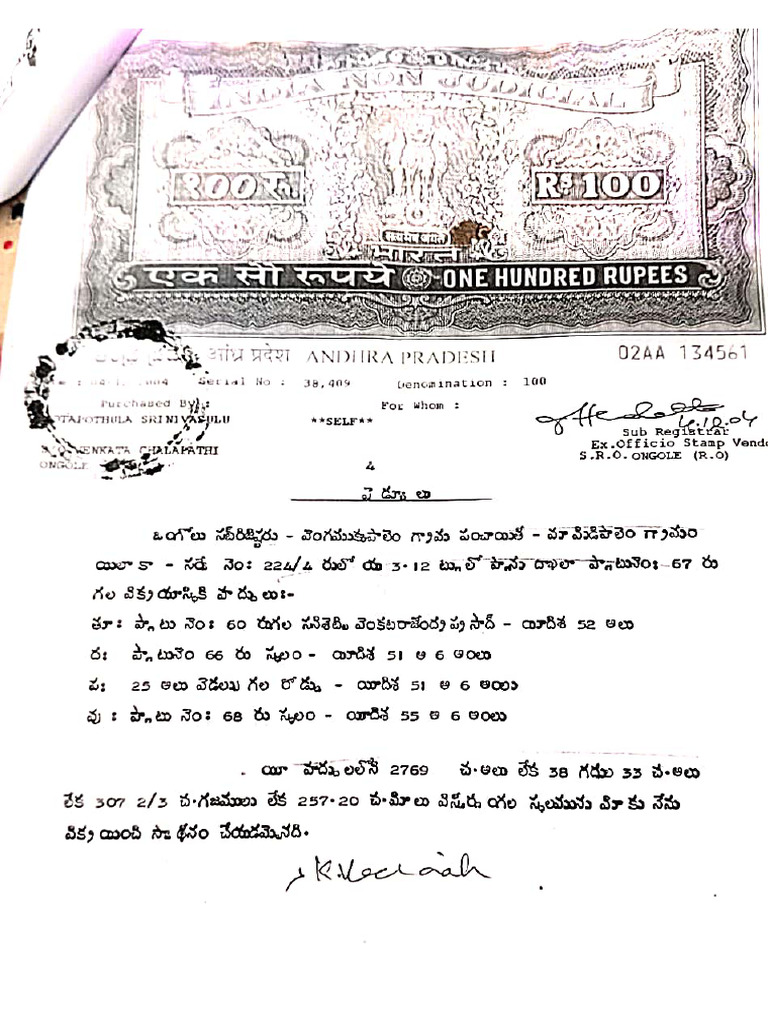 INDIA NON JUDICIAL
१००रु. Rs.100
सत्यमेव जयते
भारत
एक सौ रुपये ONE HUNDRED RUPEES
आंध्र प्रदेश ANDHRA PRADESH 02AA 134561
Serial No : 38,409 Denomination : 100
Purchased By : For Whom :
SRINIVASULU **SELF**
VENKATA CHALAPATHI
ONGOLE
4.10.04
Sub Registrar
Ex.Officio Stamp Vend
S.R.O. ONGOLE (R.O)
4
షెడ్యూలు
ఒంగోలు సబ్‌రిజిస్ట్రారు - వెంగముక్కపాలెం గ్రామ పంచాయితీ - మామిడిపాలెం గ్రామం
యిలాకా - సర్వే నెం: 224/4 రులో య 3.12 ట్లులో ప్లాను దాఖలా ప్లాటునెం: 67 రు
గల విక్రయాస్తికి హద్దులు:-
తూ: ప్లాటు నెం: 60 రుగల సనిశెట్టి వెంకటరాజేంద్రప్రసాద్ - యీదిశ 52 అలు
ద: ప్లాటునెం 66 రు స్థలం - యీదిశ 51 అ 6 అంలు
ప: 25 అలు వెడల్పు గల రోడ్డు - యీదిశ 51 అ 6 అంలు
వు : ప్లాటు నెం: 68 రు స్థలం - యీదిశ 55 అ 6 అంలు
యీ హద్దులలోని 2769 చ.అలు లేక 38 గదులు 33 చ.అలు
లేక 307 2/3 చ.గజములు లేక 257.20 చ.మీలు విస్తీర్ణంగల స్థలమును మీకు నేను
విక్రయించి స్వాధీనం చేయడమైనది.